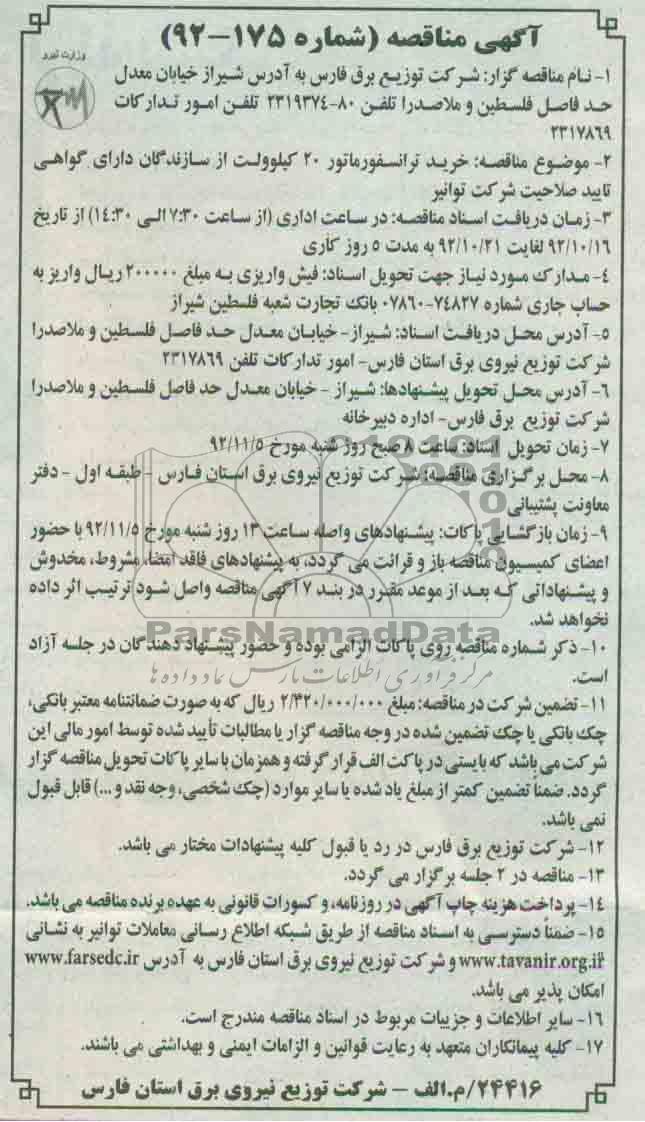 آگهی مناقصه (شماره ۱۷۵-۹۲)
وزارت نیرو
۱- نام مناقصه گزار: شرکت توزیع برق فارس به آدرس شیراز خیابان معدل
حد فاصل فلسطین و ملاصدرا تلفن ۸۰-۲۳۱۹۳۷۴ تلفن امور تدارکات
۲۳۱۷۸۶۹
۲- موضوع مناقصه: خرید ترانسفورماتور ۲۰ کیلوولت از سازندگان دارای گواهی
تایید صلاحیت شرکت توانیر
۳- زمان دریافت اسناد مناقصه: در ساعت اداری (از ساعت ۷:۳۰ الی ۱۴:۳۰) از تاریخ
۹۲/۱۰/۱۶ لغایت ۹۲/۱۰/۲۱ به مدت ۵ روز کاری
۴- مدارک مورد نیاز جهت تحویل اسناد: فیش واریزی به مبلغ ۲۰۰۰۰۰ ریال واریز به
حساب جاری شماره ۷۴۸۲۷-۰۷۸۶۰ بانک تجارت شعبه فلسطین شیراز
۵- آدرس محل دریافت اسناد: شیراز- خیابان معدل حد فاصل فلسطین و ملاصدرا
شرکت توزیع نیروی برق استان فارس- امور تدارکات تلفن ۲۳۱۷۸۶۹
۶- آدرس محل تحویل پیشنهادها: شیراز - خیابان معدل حد فاصل فلسطین و ملاصدرا
شرکت توزیع برق فارس- اداره دبیرخانه
۷- زمان تحویل اسناد: ساعت ۸ صبح روز شنبه مورخ ۹۲/۱۱/۵
۸- محل برگزاری مناقصه: شرکت توزیع نیروی برق استان فارس - طبقه اول - دفتر
معاونت پشتیبانی
۹- زمان بازگشایی پاکات: پیشنهادهای واصله ساعت ۱۳ روز شنبه مورخ ۹۲/۱۱/۵ با حضور
اعضای کمیسیون مناقصه باز و قرائت می گردد، به پیشنهادهای فاقد امضا، مشروط، مخدوش
و پیشنهاداتی که بعد از موعد مقرر در بند ۷ آگهی مناقصه واصل شود ترتیب اثر داده
نخواهد شد.
ParsNamadData
۱۰- ذکر شماره مناقصه روی پاکات الزامی بوده و حضور پیشنهاد دهندگان در جلسه آزاد
است.
مرکز فرآوری اطلاعات پارس نماد داده ها
۱۱- تضمین شرکت در مناقصه: مبلغ ۲/۳۲۰/۰۰۰/۰۰۰ ریال که به صورت ضمانتنامه معتبر بانکی،
چک بانکی یا چک تضمین شده در وجه مناقصه گزار یا مطالبات تأیید شده توسط امور مالی این
شرکت می باشد که بایستی در پاکت الف قرار گرفته و همزمان با سایر پاکات تحویل مناقصه گزار
گردد. ضمناً تضمین کمتر از مبلغ یاد شده یا سایر موارد (چک شخصی، وجه نقد و ...) قابل قبول
نمی باشد.
۱۲- شرکت توزیع برق فارس در رد یا قبول کلیه پیشنهادات مختار می باشد.
۱۳- مناقصه در ۲ جلسه برگزار می گردد.
۱۴- پرداخت هزینه چاپ آگهی در روزنامه، و کسورات قانونی به عهده برنده مناقصه می باشد.
۱۵- ضمناً دسترسی به اسناد مناقصه از طریق شبکه اطلاع رسانی معاملات توانیر به نشانی
www.tavanir.org.ir و شرکت توزیع نیروی برق استان فارس به آدرس www.farsedc.ir
امکان پذیر می باشد.
۱۶- سایر اطلاعات و جزییات مربوط در اسناد مناقصه مندرج است.
۱۷- کلیه پیمانکاران متعهد به رعایت قوانین و الزامات ایمنی و بهداشتی می باشند.
۲۴۴۱۶/م.الف - شرکت توزیع نیروی برق استان فارس